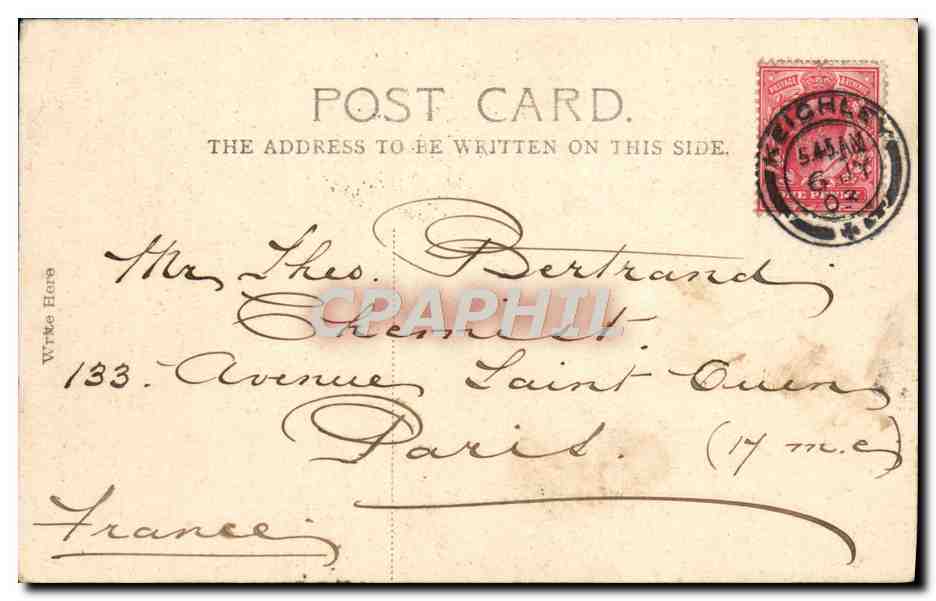 POST CARD.
THE ADDRESS TO BE WRITTEN ON THIS SIDE.
KEIGHLEY
5.45 AM
6 JY
03
POSTAGE REVENUE
ONE PENNY
Write Here
Mr Theo. Bertrand
Chemist.
CPAPHIL
133. Avenue Saint Ouen
Paris. (17 m.e)
France